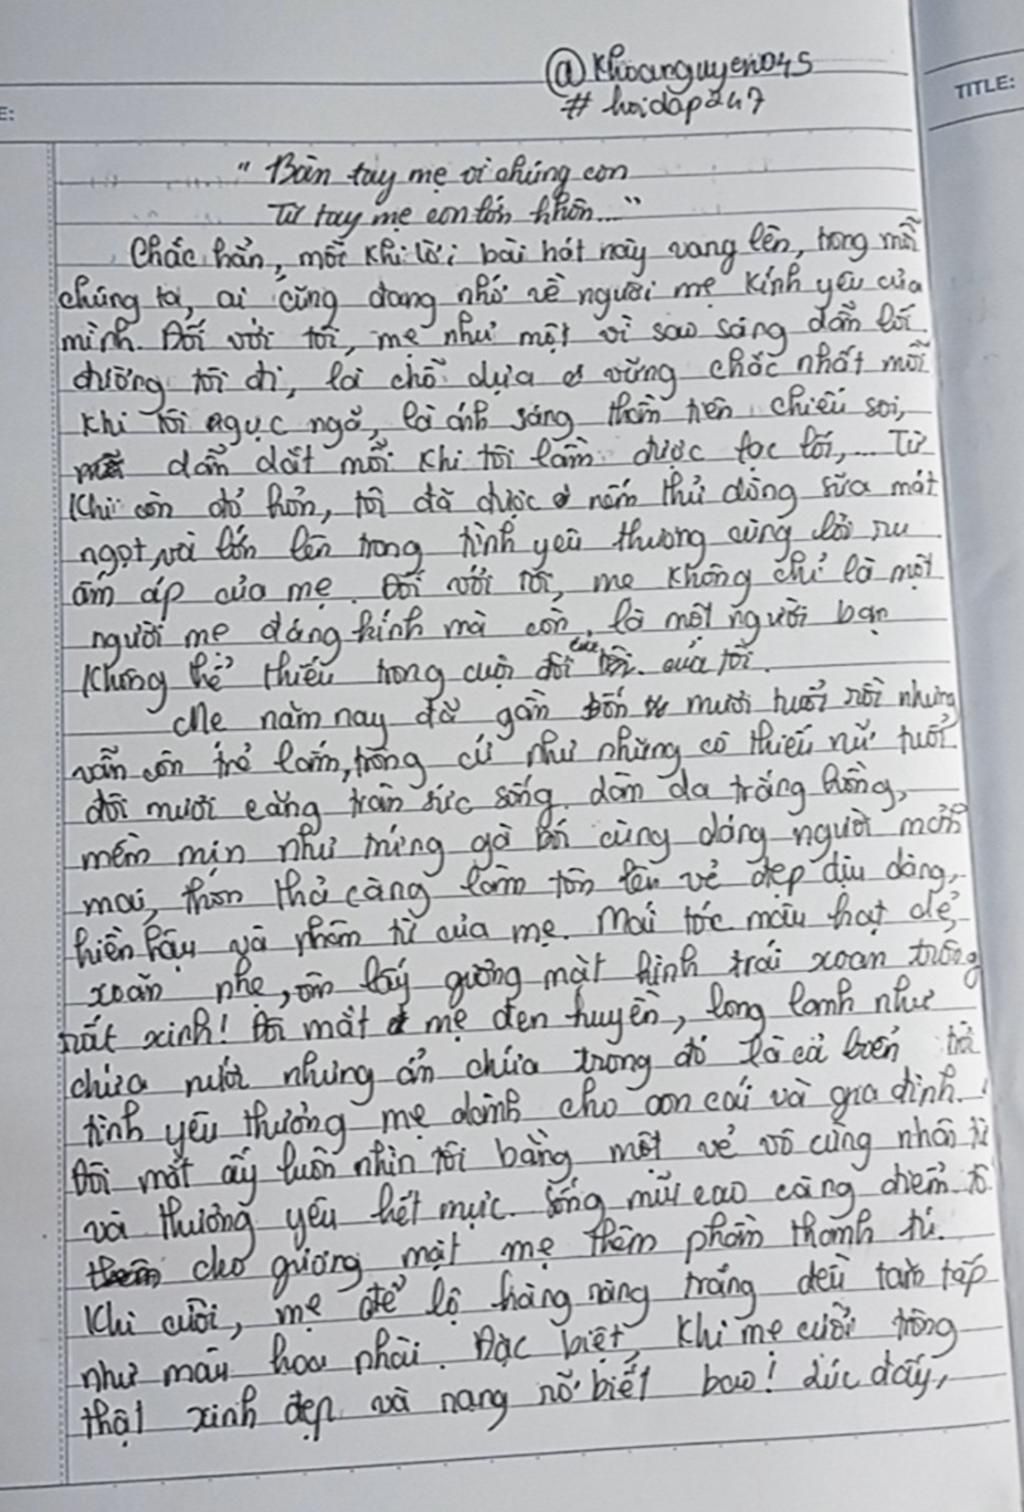 @khoanguyen045
# hoidap247
E:
TITLE:
" Bàn tay mẹ vì chúng con
Từ tay mẹ con lớn khôn..."
Chắc hẳn, mỗi khi lời bài hát này vang lên, trong mỗi
chúng ta, ai cũng đang nhớ về người mẹ kính yêu của
mình. Đối với tôi, mẹ như một vì sao sáng dẫn lối
đường tôi đi, là chỗ dựa vững chắc nhất mỗi
khi tôi ngục ngã, là ánh sáng thầm trên chiếu soi,
dẫn dắt mỗi khi tôi lầm được lạc lối,... Từ
khi còn đỏ hỏn, tôi đã được nếm thử dòng sữa mát
ngọt, và lớn lên trong tình yêu thương cùng lời ru
ấm áp của mẹ. Đối với tôi, mẹ không chỉ là một
người mẹ đáng kính mà còn là một người bạn
không thể thiếu trong cuộc đời của tôi.
Mẹ năm nay đã gần bốn mươi tuổi rồi nhưng
vẫn còn trẻ lắm, trông cứ như những cô thiếu nữ tuổi
đôi mươi căng tràn sức sống. Làn da trắng hồng,
mềm mịn như trứng gà bóc cùng dáng người mảnh
mai, thon thả càng làm tôn lên vẻ đẹp dịu dàng,
hiền hậu và nhân từ của mẹ. Mái tóc màu hạt dẻ,
xoăn nhẹ, ôm lấy gương mặt hình trái xoan trông
rất xinh! Đôi mắt mẹ đen huyền, long lanh như
chứa nước nhưng ẩn chứa trong đó là cả biển trời
tình yêu thương mẹ dành cho con cái và gia đình.
Đôi mắt ấy luôn nhìn tôi bằng một vẻ vô cùng nhân từ
và thương yêu hết mực. Sống mũi cao càng điểm tô
cho gương mặt mẹ thêm phần thanh tú.
Khi cười, mẹ để lộ hàng răng trắng đều tăm tắp
như màu hoa nhài. Đặc biệt, khi mẹ cười trông
thật xinh đẹp và rạng rỡ biết bao! Lúc đấy,